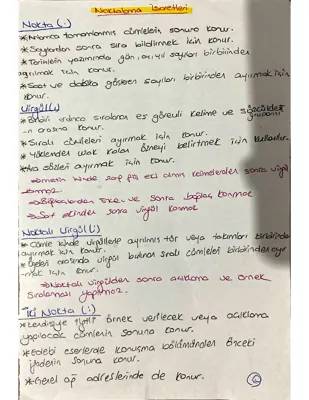 Noktalama İşaretleri
Nokta (.)
*Anlamca tamamlanmış cümlelerin sonuna konur.
*Sayılardan sonra sıra bildirmek için konur.
*Tarihlerin yazımında gün, ay, yıl sayıları birbirinden
ayırmak için konur.
*Saat ve dakika gösteren sayıları birbirinden ayırmak için
konur.
Virgül (,)
*Birbiri ardınca sıralanan eş görevli kelime ve söz
-n arasına konur.
*Sıralı cümleleri ayırmak için konur.
*Yüklemden uzak kalan özneyi belirtmek için kullanılır.
*Ara sözleri ayırmak için konur.
içinde zarf fiil eki almış kelimelerden sonra virgül
konmaz
önce ve sonra bağlaç konmaz
→Şart ekinden sonra virgül konmaz
Noktalı Virgül (;)
*Cümle içinde virgüllerle ayrılmış tür veya takımları birbirinden
ayırmak için konur.
*Ögeleri arasında virgül bulunan sıralı cümleleri birbirinden ayır
-mak için konur.
→Noktalı virgülden sonra açıklama ve örnek
sıralaması yapılmaz.
İki Nokta (:)
*Kendisiyle ilgili örnek verilecek veya açıklama
yapılacak cümlenin sonuna konur.
*Edebi eserlerde konuşma bölümünden önceki
ifadenin sonuna konur.
*Genel ağ adreslerinde de konur.